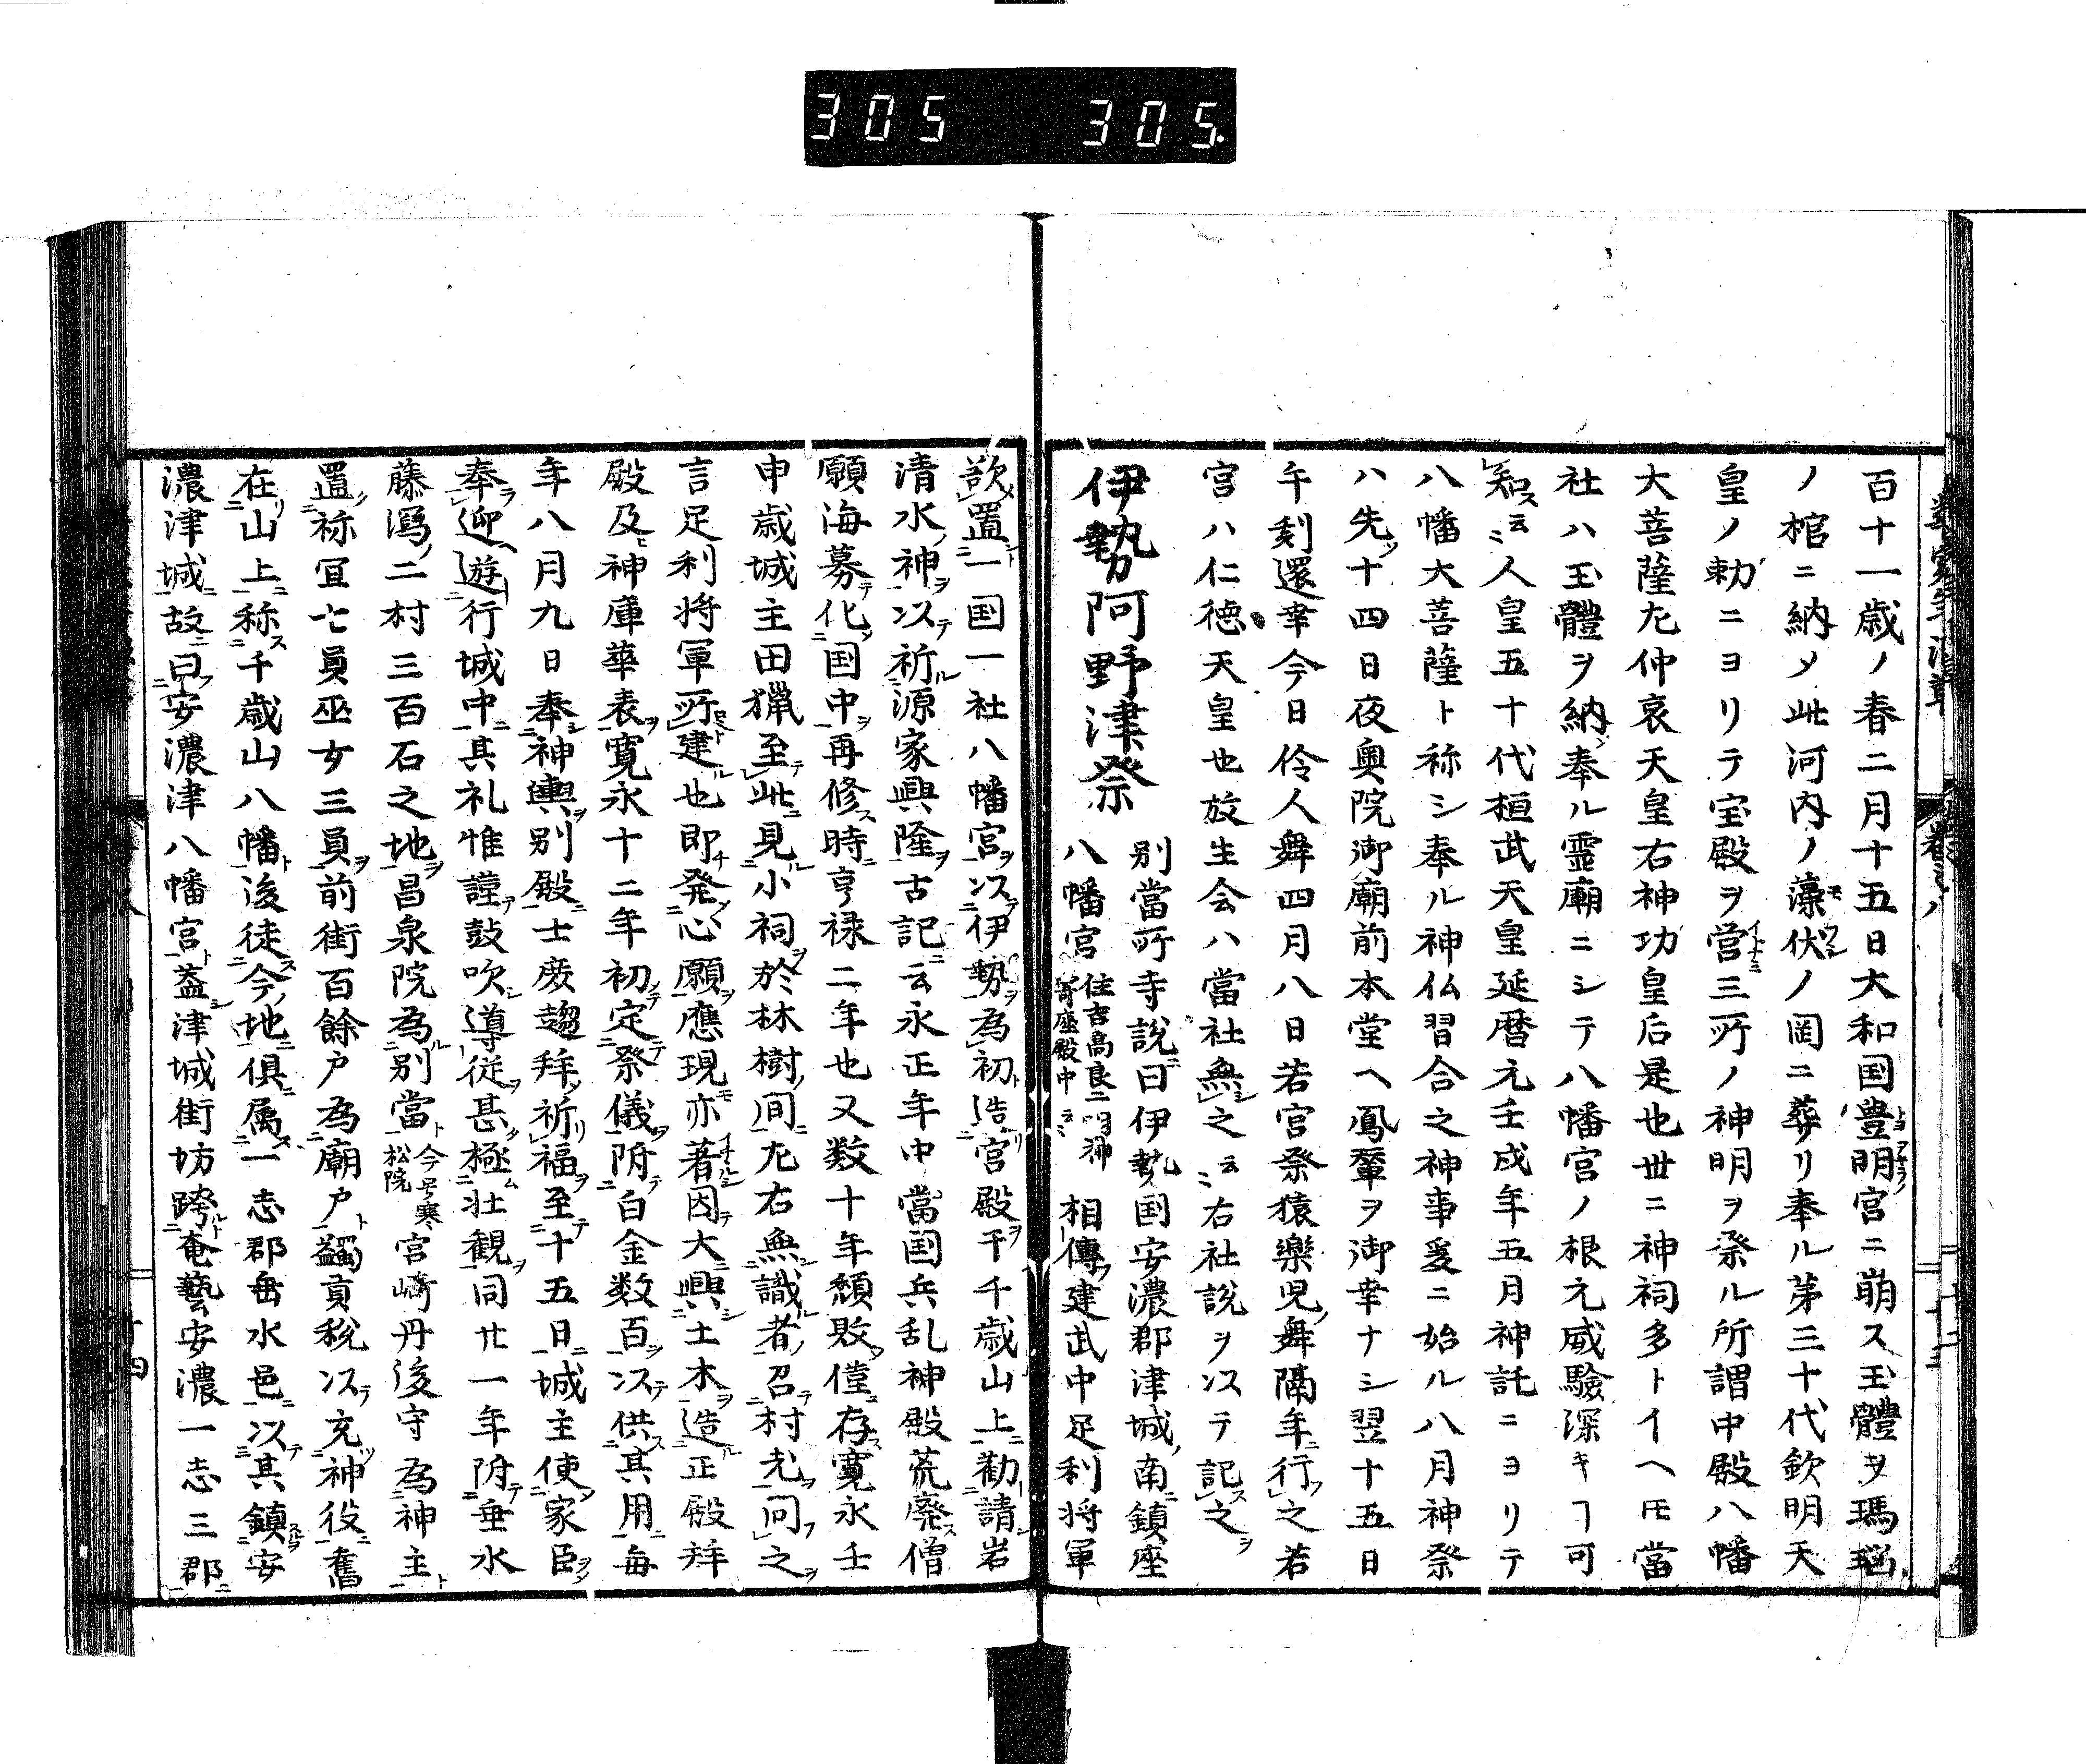 305 305.
百十一歳ノ春二月十五日大和国豊明宮ニ崩ス玉體ヲ瑪瑙
ノ棺ニ納メ此河内ノ藻伏ノ岡ニ葬リ奉ル第三十代欽明天
皇ノ勅ニヨリテ宝殿ヲ営三所ノ神明ヲ祭ル所謂中殿八幡
大菩薩左仲哀天皇右神功皇后是也世ニ神祠多トイヘモ當
社ハ玉體ヲ納奉ル霊廟ニシテ八幡宮ノ根元威驗深キヿ可
知云ミ人皇五十代桓武天皇延暦元壬戌年五月神託ニヨリテ
八幡大菩薩ト称シ奉ル神仏習合之神事爰ニ始ル八月神祭
ハ先十四日夜奥院御廟前本堂ヘ鳳輦ヲ御幸ナシ翌十五日
午刻還幸今日伶人舞四月八日若宮祭猿樂児舞隔年行之若
宮ハ仁徳天皇也放生会ハ當社無之云ミ右社説ヲ以テ記之
伊勢阿野津祭
別當所寺説曰伊勢国安濃郡津城南鎮座
八幡宮 住吉高良二明神
寄座殿中云ミ 相傳建武中足利将軍
欲置一国一社八幡宮以伊勢為初造宮殿于千歳山上勧請岩
清水神以祈源家興隆古記云永正年中當国兵乱神殿荒廃僧
願海募化国中再修時亨禄二年也又数十年頽敗僅存寛永壬
申歳城主田獵至此見小祠於林樹間左右無識者召村老問之
言足利将軍所建也即発心願應現亦著因大興土木造正殿拜
殿及神庫華表寛永十二年初定祭儀附白金数百以供其用毎
年八月九日奉神輿別殿士庶趨拜祈福至十五日城主使家臣
奉迎遊行城中其礼惟謹鼓吹導從甚極壮観同廿一年附垂水
藤潟二村三百石之地昌泉院為別當 今号寒
松院 宮崎丹後守為神主
置祢宜七員巫女三員前街百餘戸為廟戸蠲貢税以充神役舊
在山上称千歳山八幡後徒今地俱属一志郡垂水邑以其鎮安
濃津城故曰安濃津八幡宮盖津城街坊跨奄藝安濃一志三郡